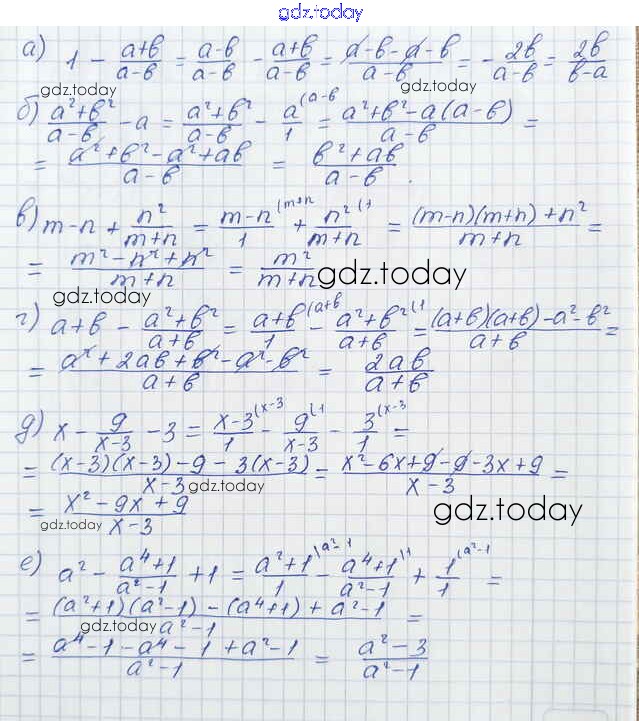 gdz.today
а) 1 - (a+b)/(a-b) = (a-b)/(a-b) - (a+b)/(a-b) = (a-b-a-b)/(a-b) = - 2b/(a-b) = 2b/(b-a)
gdz.today gdz.today
б) (a²+b²)/(a-b) - a = (a²+b²)/(a-b) - a/1 (a-b = (a²+b²-a(a-b))/(a-b) =
= (a²+b²-a²+ab)/(a-b) = (b²+ab)/(a-b).
в) m-n + n²/(m+n) = (m-n)/1 (m+n + n²/(m+n) (1 = ((m-n)(m+n)+n²)/(m+n) =
= (m²-n²+n²)/(m+n) = m²/(m+n)
gdz.today gdz.today
г) a+b - (a²+b²)/(a+b) = (a+b)/1 (a+b - (a²+b²)/(a+b) (1 = ((a+b)(a+b)-a²-b²)/(a+b) =
= (a²+2ab+b²-a²-b²)/(a+b) = 2ab/(a+b)
д) x - 9/(x-3) - 3 = (x-3)/1 (x-3 - 9/(x-3) (1 - 3/1 (x-3 =
= ((x-3)(x-3)-9-3(x-3))/(x-3) = (x²-6x+9-9-3x+9)/(x-3) =
gdz.today
= (x²-9x+9)/(x-3)
gdz.today gdz.today
е) a² - (a⁴+1)/(a²-1) + 1 = (a²+1)/1 (a²-1 - (a⁴+1)/(a²-1) (1 + 1/1 (a²-1 =
= ((a²+1)(a²-1)-(a⁴+1)+a²-1)/(a²-1) =
gdz.today
= (a⁴-1-a⁴-1+a²-1)/(a²-1) = (a²-3)/(a²-1)